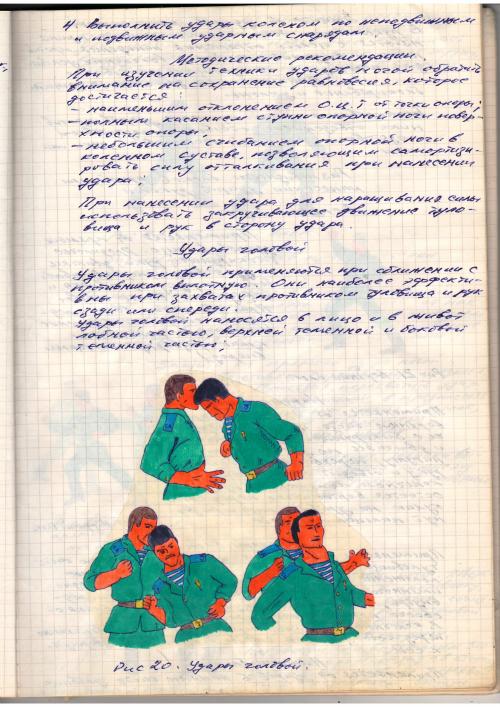 4. Выполнить удары коленом по неподвижным
и подвижным ударным снарядам.
Методические рекомендации
При изучении техники ударов ногой обратить
внимание на сохранение равновесия, которое
достигается
– наименьшим отклонением О.Ц.Т от точки опоры;
– полным касанием ступни опорной ноги повер-
хности опоры;
– небольшим сгибанием опорной ноги в
коленном суставе, позволяющим самортизи-
ровать силу отталкивания при нанесении
удара;
При нанесении удара для наращивания силы
использовать закручивающее движение туло-
вища и рук в сторону удара.
Удары головой
Удары головой применяются при сближении с
противником вплотную. Они наиболее эффекти-
вны при захватах противником туловища и рук
сзади или спереди.
Удары головой наносятся в лицо и в живот
лобной частью, верхней теменной и боковой
теменной частью;
Рис 20. Удары головой.